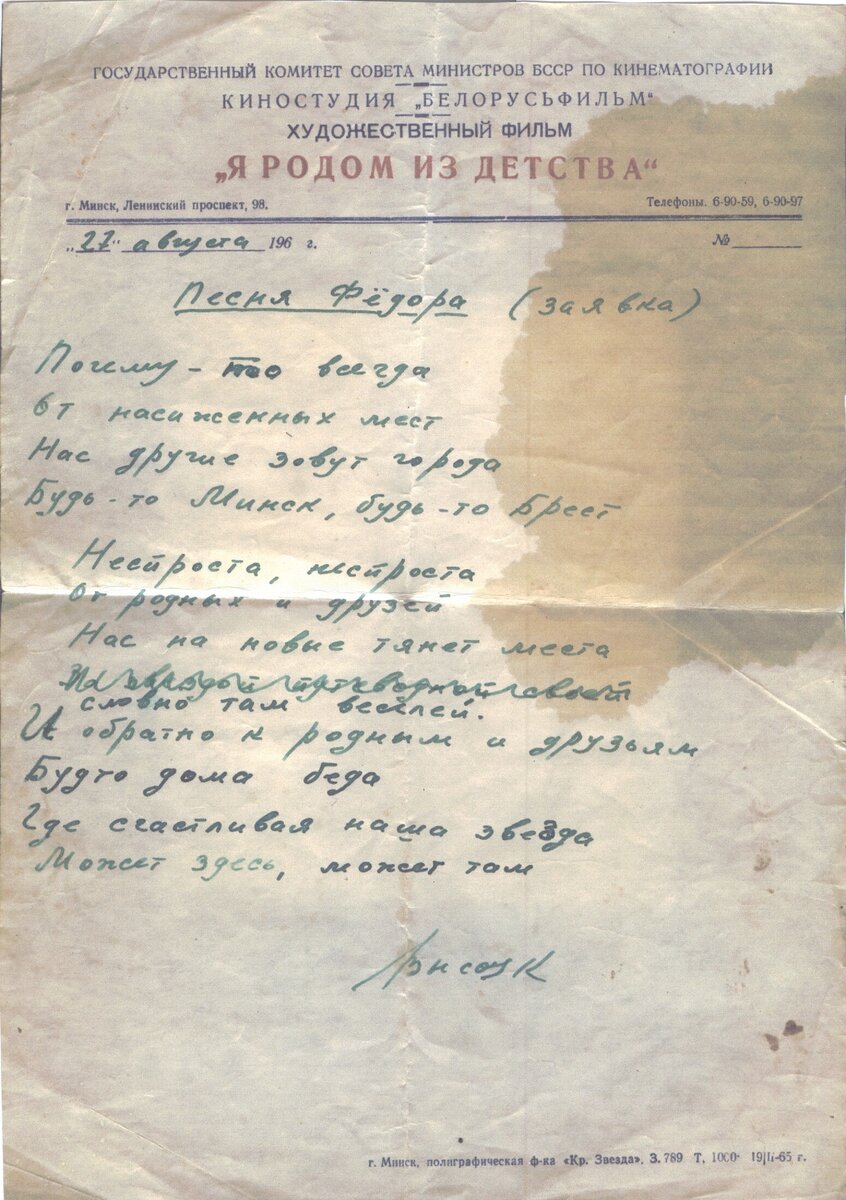 ГОСУДАРСТВЕННЫЙ КОМИТЕТ СОВЕТА МИНИСТРОВ БССР ПО КИНЕМАТОГРАФИИ
КИНОСТУДИЯ „БЕЛОРУСЬФИЛЬМ“
ХУДОЖЕСТВЕННЫЙ ФИЛЬМ
„Я РОДОМ ИЗ ДЕТСТВА“
г. Минск, Ленинский проспект, 98. Телефоны. 6-90-59, 6-90-97
„27“ августа 196 г. №
Песня Фёдора (заявка)
Почему-то всегда
От насиженных мест
Нас другие зовут города
Будь-то Минск, будь-то Брест
Неспроста, неспроста
От родных и друзей
Нас на новые тянет места
словно там веселей.
И обратно к родным и друзьям
Будто дома беда
Где счастливая наша звезда
Может здесь, может там
г. Минск, полиграфическая ф-ка «Кр. Звезда». З. 789 Т. 1000 19/II-65 г.